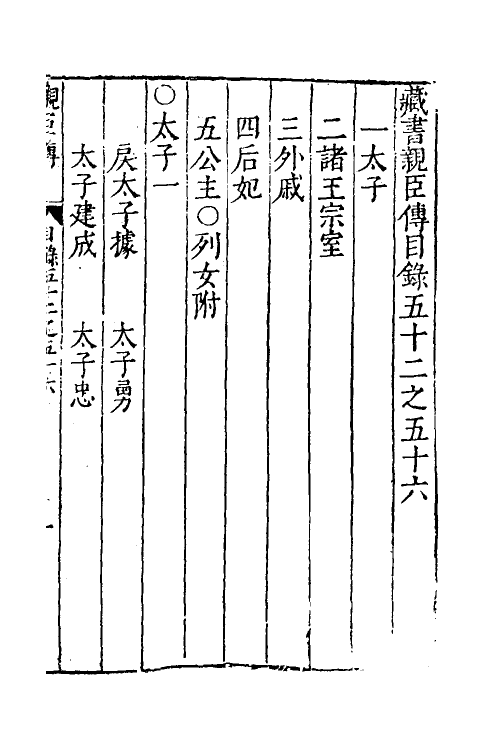 藏書親臣傳目錄五十二之五十六
一太子
二諸王宗室
三外戚
四后妃
五公主○列女附
○太子一
戾太子據 太子勇
太子建成 太子忠
親臣傳 目錄五十二之五十六 一